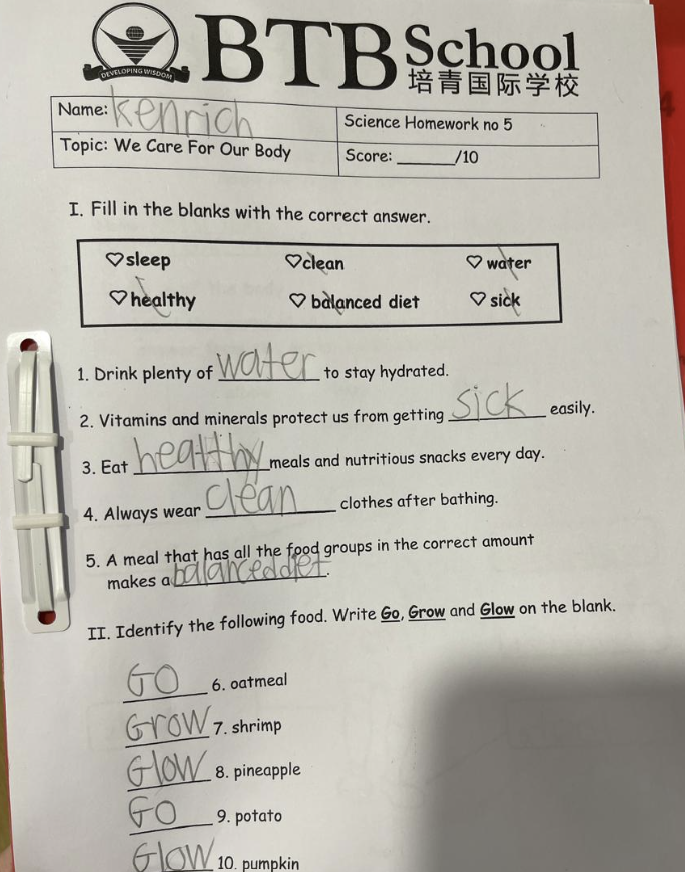 DEVELOPING WISDOM
BTB School
培青国际学校
Name: Kenrich
Science Homework no 5
Topic: We Care For Our Body
Score: ______/10
I. Fill in the blanks with the correct answer.
♡sleep ♡clean ♡ water
♡healthy ♡ balanced diet ♡ sick
1. Drink plenty of water to stay hydrated.
2. Vitamins and minerals protect us from getting sick easily.
3. Eat healthy meals and nutritious snacks every day.
4. Always wear clean clothes after bathing.
5. A meal that has all the food groups in the correct amount
makes a balanced diet.
II. Identify the following food. Write Go, Grow and Glow on the blank.
GO 6. oatmeal
Grow 7. shrimp
Glow 8. pineapple
GO 9. potato
Glow 10. pumpkin